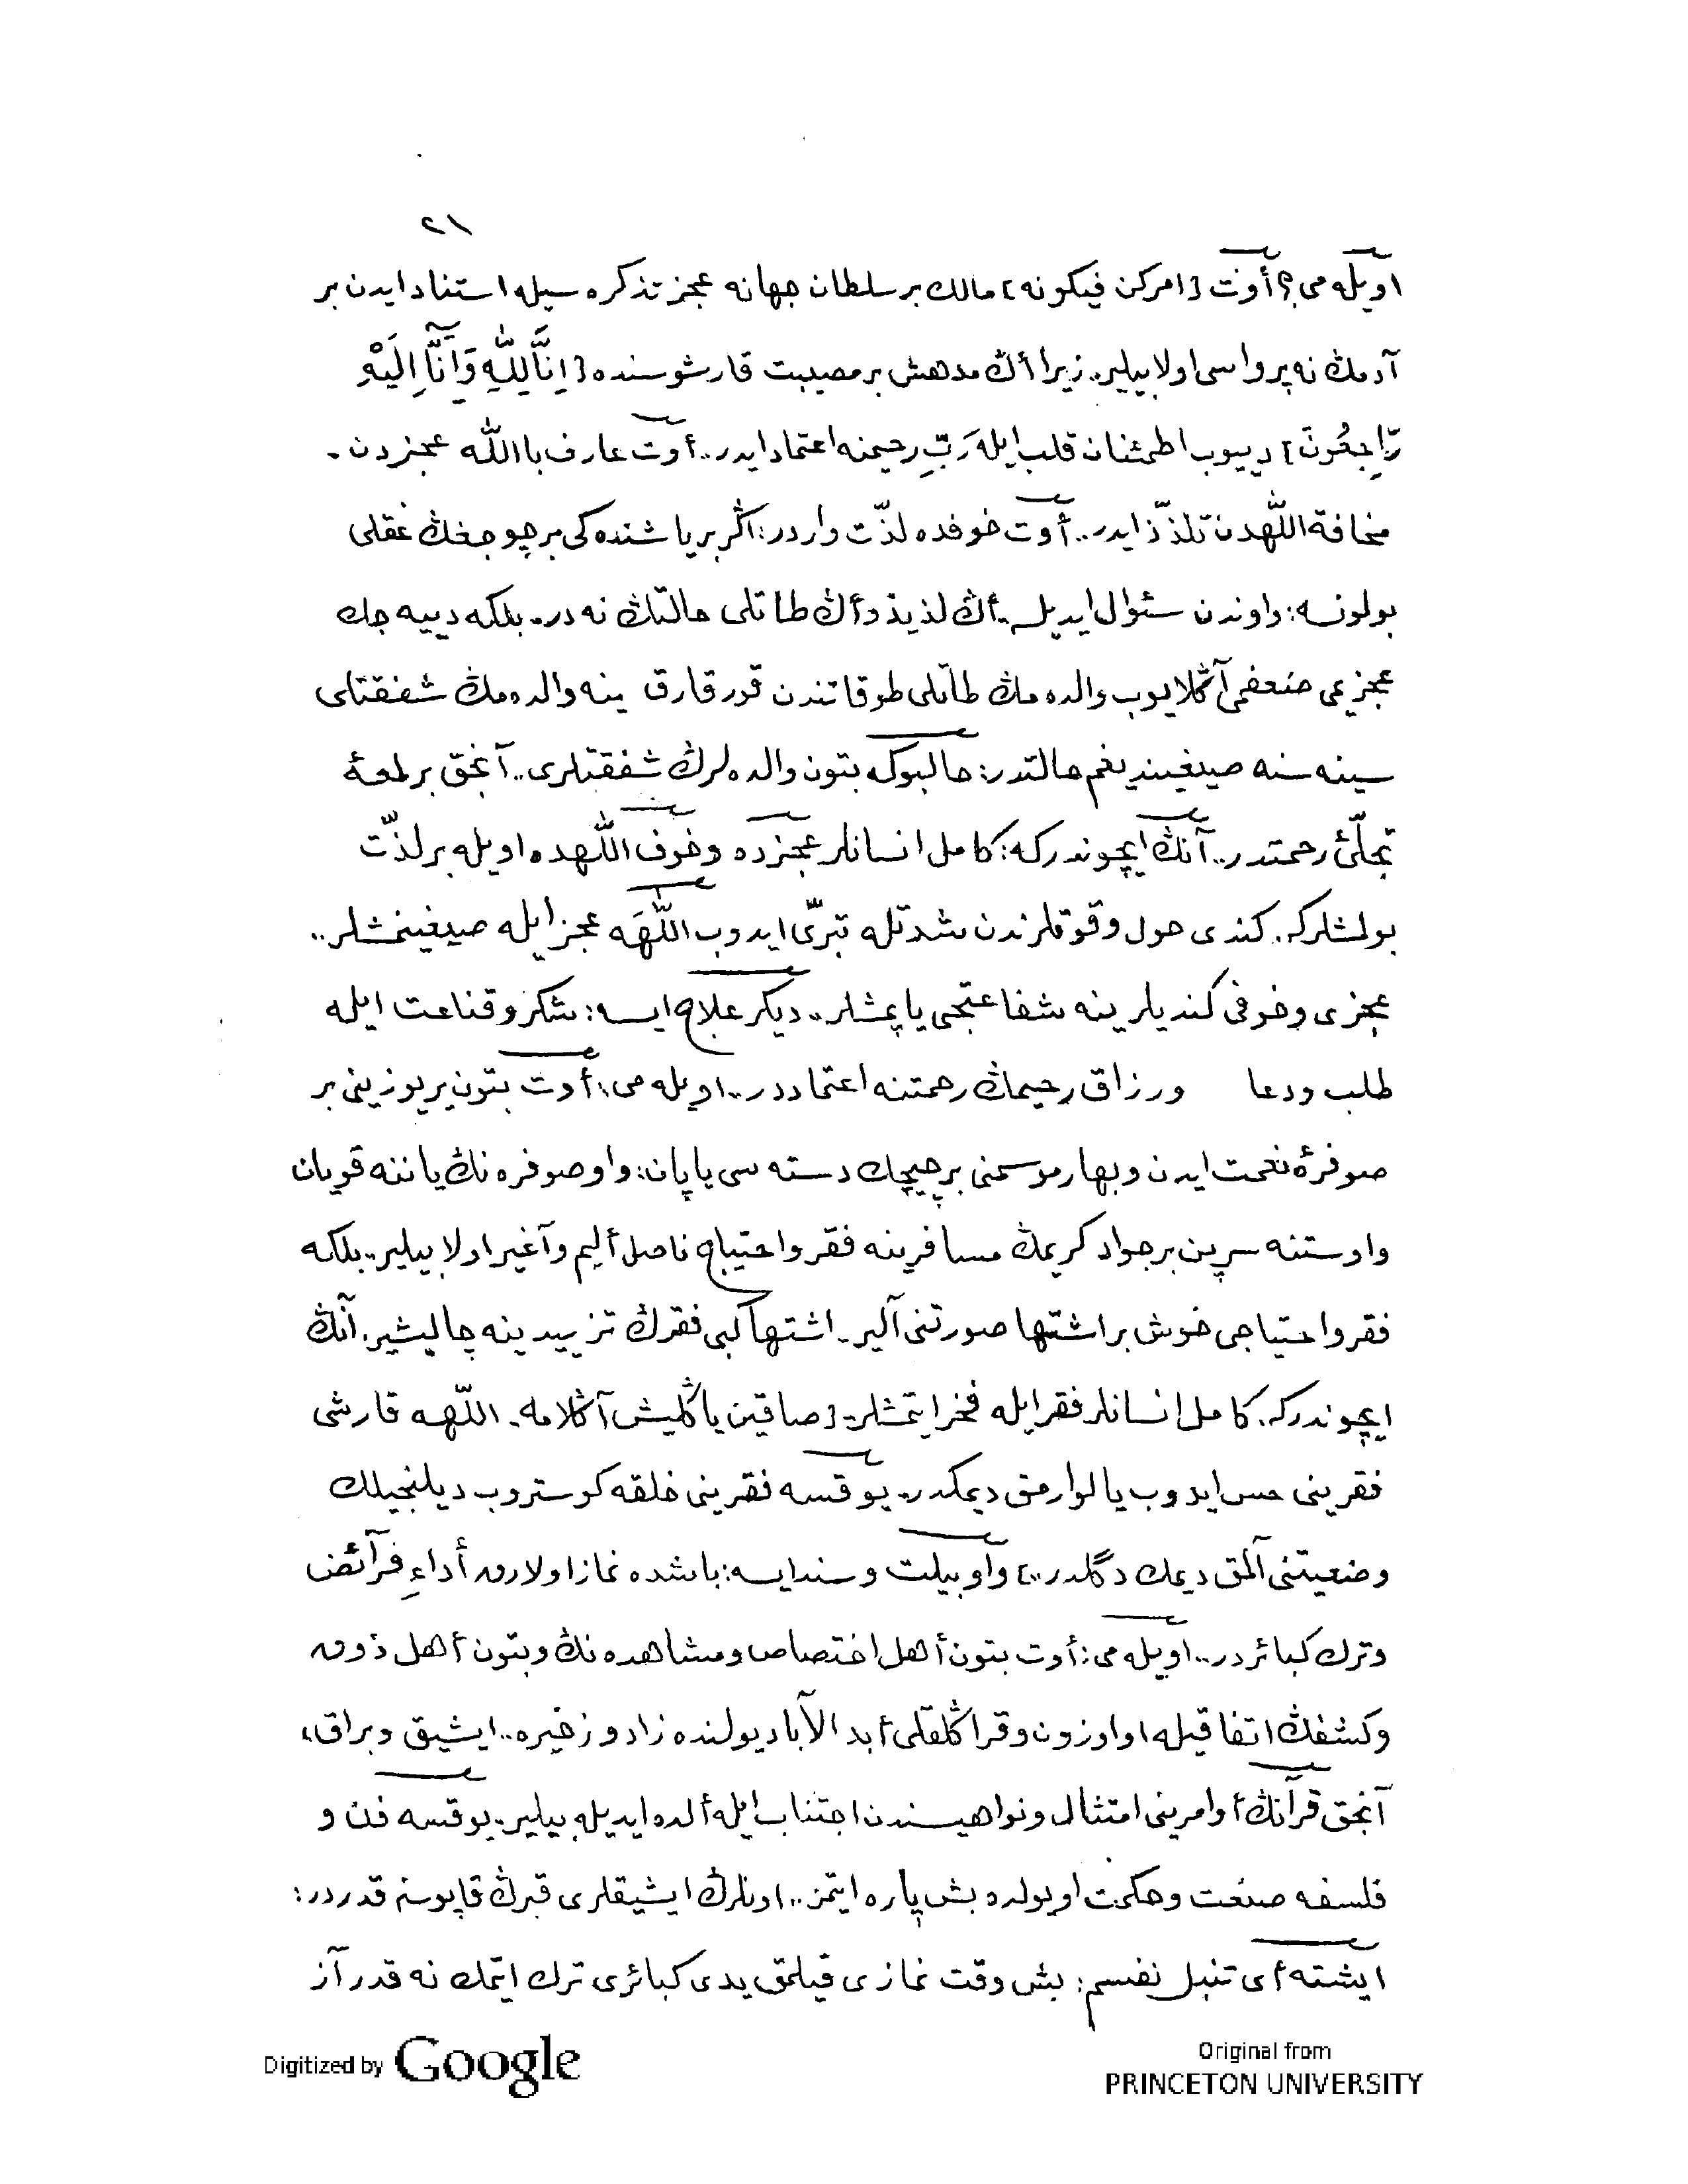 ٢١
اويله مى؟ أوت [امر كن فيكونه] مالك بر سلطان جهانه عجز تذكره سيله استناد ايدن بر
آدمك نه پرواسى اولابيلير.. زيرا أڭ مدهش بر مصيبت قارشوسنده [اِنَّا لِلّٰهِ وَاِنَّٓا اِلَيْهِ
رَاجِعُونَ] دييوب اطمئنان قلب ايله رَبِّ رحيمنه اعتماد ايدر.. أوت عارف باالله عجزدن
مخافة اللّٰهدن تلذّذ ايدر.. أوت خوفده لذّت واردر: اڭر بر ياشنده كى بر چوجغڭ عقلى
بولونسه: واوندن سئوال ايديلسه. أڭ لذيذ وأڭ طاتلى حالتڭ نه در. بلكه دييه جك
عجزمى ضعفمى آڭلايوب والده مڭ طاتلى طوقاتندن قورقارق ينه والده مڭ شفقتلى
سينه سنه صيغينديغم حالتدر: حالبوكه بتون والده لرڭ شفقتلرى.. آنجق بر لمعۀ
تجلّئ رحمتدر.. آنڭ ايچوندركه: كامل انسانلر عجزده وخوف اللّٰهده اويله بر لذّت
بولمشلركه. كندى حول وقوّتلرندن شدتله تبرّى ايدوب اللّٰهَه عجز ايله صيغينمشلر..
عجزى وخوفى كنديلرينه شفاعتجى ياپمشلر.. ديكر علاج ايسه: شكر وقناعت ايله
طلب ودعا ورزاق رحيمڭ رحمتنه اعتماددر.. اويله مى: أوت بتون يريوزينى بر
صوفرۀ نعمت ايدن وبهار موسمنى بر چيچك دسته سى ياپان: واو صوفره نڭ ياننه قويان
واوستنه سرپن بر جواد كريمڭ مسافرينه فقر واحتياج ناصل أليم وآغير اولابيلير.. بلكه
فقر واحتياجى خوش بر اشتها صورتنى آلير. اشتها كبى فقرڭ تزييدينه چاليشير. آنڭ
ايچوندركه. كامل انسانلر فقر ايله فخر ايتمشلر. [صاقين ياڭليش آڭلامه. اللّٰهه قارشى
فقرينى حس ايدوب يالوارمق ديمكدر. يوقسه فقرينى خلقه كوستروب ديلنجيلك
وضعيتنى آلمق ديمك دگلدر..] واو بيلت وسند ايسه: باشده نماز اولارق أداءِ فرآئض
وترك كبائردر.. اويله مى: أوت بتون أهل اختصاص ومشاهده نڭ وبتون أهل ذوق
وكشفڭ اتفاقيله او اوزون وقراڭلقلى أبد الآباد يولنده زاد وزخيره.. ايشيق وبراق،
آنجق قرآنڭ أوامرينى امتثال ونواهيسندن اجتناب ايله ألده ايديله بيلير. يوقسه فن و
فلسفه صنعت وحكمت او يولده بش پاره ايتمز.. اونلرڭ ايشيقلرى قبرڭ قاپوسنه قدردر:
ايشته أى تنبل نفسم: بش وقت نمازى قيلمق يدى كبائرى ترك ايتمك نه قدر آز
Digitized by Google
Original from
PRINCETON UNIVERSITY